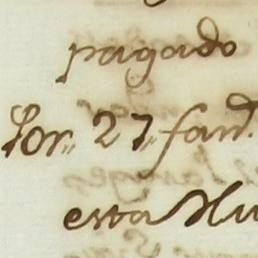 pagado
Por 27 fan.^d
esta Nu